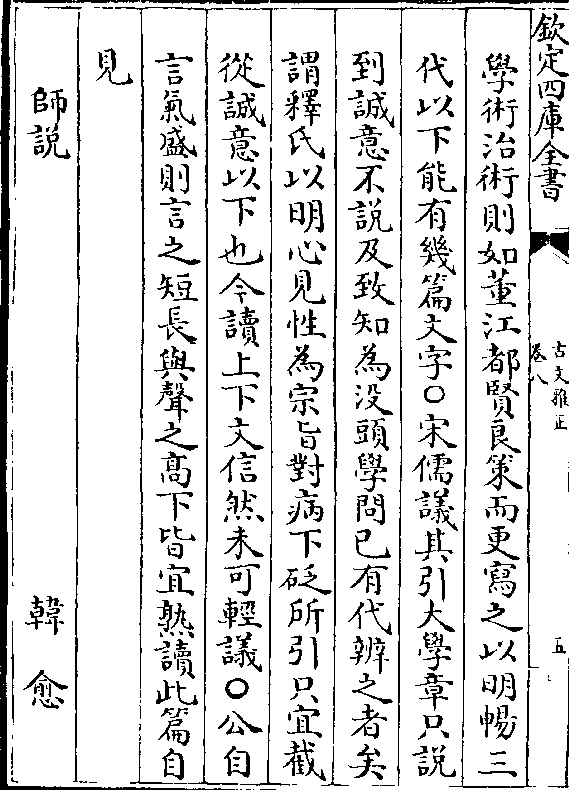 欽定四庫全書
古文雅正
卷八
五
學術治術則如董江都賢良策而更寫之以明暢三
代以下能有幾篇文字○宋儒議其引大學章只說
到誠意不說及致知為没頭學問已有代辨之者矣
謂釋氏以明心見性為宗旨對病下砭所引只宜截
從誠意以下也今讀上下文信然未可輕議○公自
言氣盛則言之短長與聲之高下皆宜熟讀此篇自
見
師説 韓愈